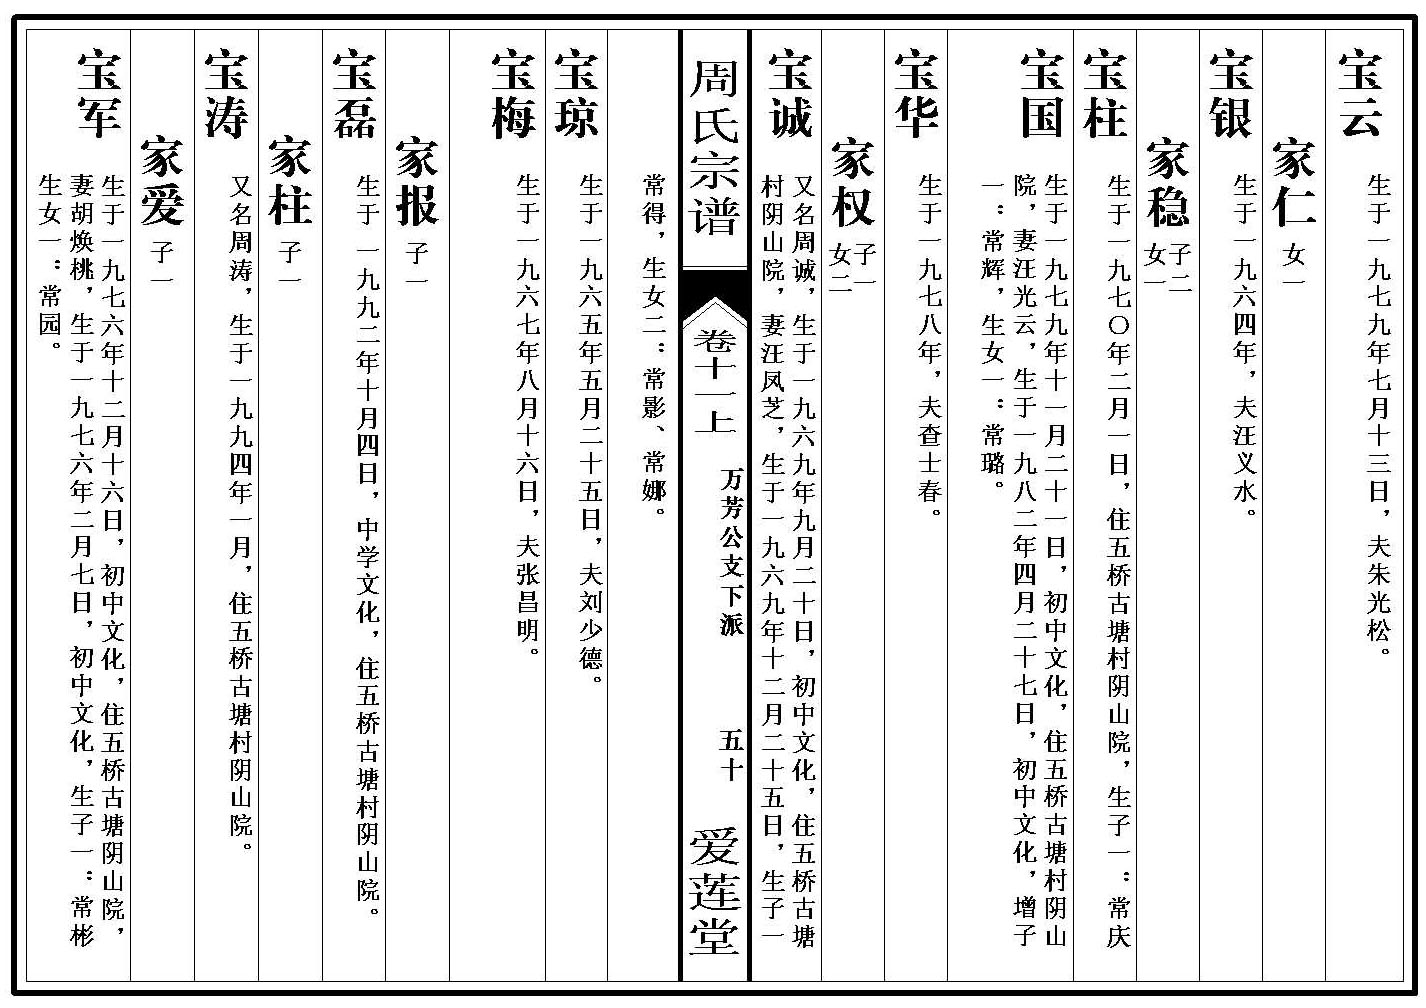 宝云
生于一九七九年七月十三日，夫朱光松。
家仁
女一
宝银
生于一九六四年，夫汪义水。
家稳
子二
女一
宝柱
生于一九七〇年二月一日，住五桥古塘村阴山院，生子一：常庆
宝国
生于一九七九年十一月二十一日，初中文化，住五桥古塘村阴山
院，妻汪光云，生于一九八二年四月二十七日，初中文化，增子
一：常辉，生女一：常璐。
宝华
生于一九七八年，夫查士春。
家权
子一
女二
宝诚
又名周诚，生于一九六九年九月二十日，初中文化，住五桥古塘
村阴山院，妻汪凤芝，生于一九六九年十二月二十五日，生子一
周氏宗谱
卷十一上
万芳公支下派
五十
爱莲堂
常得，生女二：常影、常娜。
宝琼
生于一九六五年五月二十五日，夫刘少德。
宝梅
生于一九六七年八月十六日，夫张昌明。
家报
子一
宝磊
生于一九九二年十月四日，中学文化，住五桥古塘村阴山院。
家柱
子一
宝涛
又名周涛，生于一九九四年一月，住五桥古塘村阴山院。
家爱
子一
宝军
生于一九七六年十二月十六日，初中文化，住五桥古塘阴山院，
妻胡焕桃，生于一九七六年二月七日，初中文化，生子一：常彬
生女一：常园。